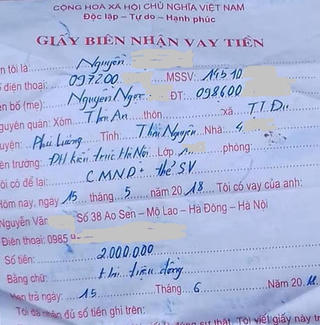 CỘNG HÒA XÃ HỘI CHỦ NGHĨA VIỆT NAM
Độc lập - Tự do - Hạnh phúc
GIẤY BIÊN NHẬN VAY TIỀN
ên tôi là: Nguyễn
điện thoại: 097200 MSSV: 14510
ên bố (mẹ): Nguyễn Ngọc ĐT: 098600
quyên quán: Xóm Thôn An thôn xã T.T. Đu
uyện: Phú Lương Tỉnh: Thái Nguyên Nhà: 4
ên trường: ĐH kiến trúc Hà Nội Lớp phòng:
ôi có để lại: CMND + thẻ SV
Hôm nay, ngày 15 tháng 5 năm 2018 Tôi có vay của anh:
Nguyễn Văn Số 38 Ao Sen - Mộ Lao - Hà Đông - Hà Nội
Điện thoại: 0985
Số tiền: 2.000.000
Bằng chữ: Hai triệu đồng
trả ngày: 15 Tháng 6 Năm 20
Tôi đã nhận đủ số tiền ghi trên:
Tôi viết giấy này